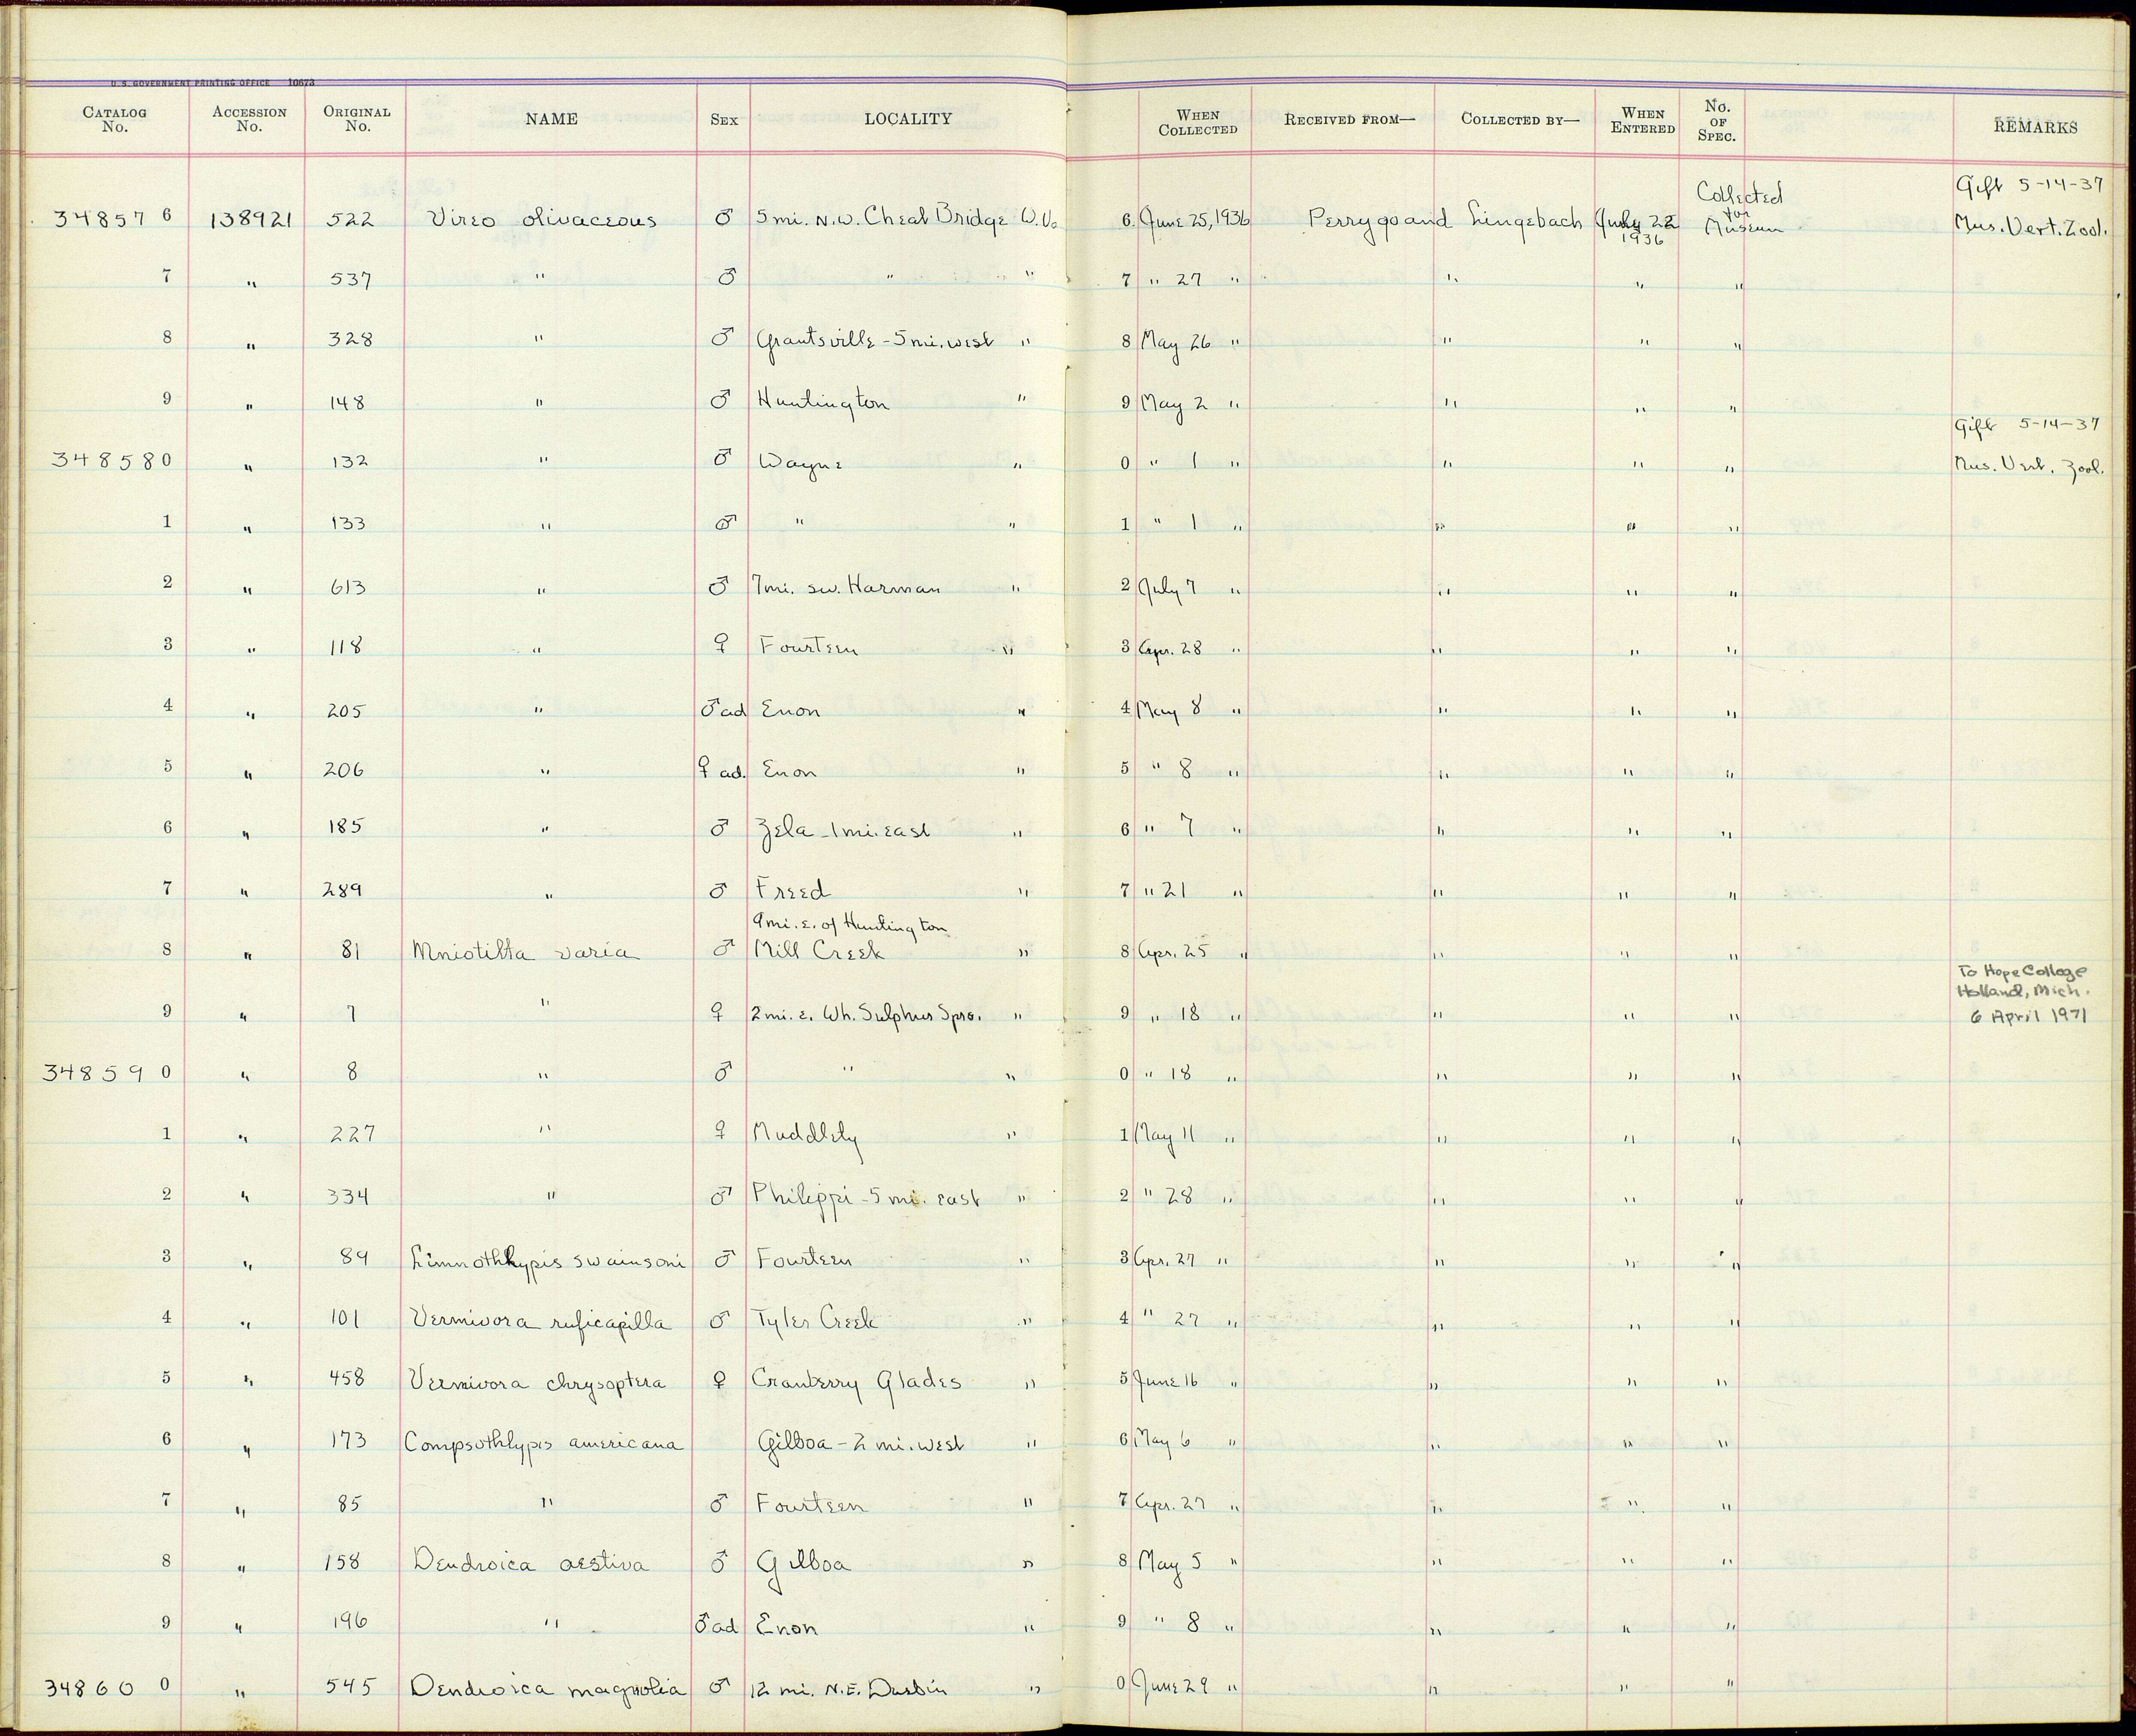 U.S. GOVERNMENT PRINTING OFFICE 10673
CATALOG No. ACCESSION No. ORIGINAL No. NAME SEX LOCALITY WHEN COLLECTED RECEIVED FROM— COLLECTED BY— WHEN ENTERED No. OF SPEC. REMARKS
34857 6 138921 522 Vireo olivaceous ♂ 5 mi. N.W. Cheat Bridge W.Va 6 June 25, 1936 Perrygo and Lingebach July 22 1936 Collected for Museum Gift 5-14-37 Mus. Vert. Zool.
7 " 537 " ♂ " " 7 " 27 " " " "
8 " 328 " ♂ Grantsville - 5 mi. west " 8 May 26 " " " "
9 " 148 " ♂ Huntington " 9 May 2 " " " "
34858 0 " 132 " ♂ Wayne " 0 " 1 " " " " Gift 5-14-37 Mus. Vert. Zool.
1 " 133 " ♂ " " 1 " 1 " " " "
2 " 613 " ♂ 7 mi. sw. Harman " 2 July 7 " " " "
3 " 118 " ♀ Fourteen " 3 Apr. 28 " " " "
4 " 205 " ♂ ad Enon " 4 May 8 " " " "
5 " 206 " ♀ ad. Enon " 5 " 8 " " " "
6 " 185 " ♂ Zela - 1 mi. east " 6 " 7 " " " "
7 " 289 " ♂ Freed " 7 " 21 " " " "
9 mi. e. of Huntington
8 " 81 Mniotilta varia ♂ Mill Creek " 8 Apr. 25 " " " "
9 " 7 " ♀ 2 mi. e. Wh. Sulphur Sprs. " 9 " 18 " " " " To Hope College Holland, Mich. 6 April 1971
34859 0 " 8 " ♂ " " 0 " 18 " " " "
1 " 227 " ♀ Muddlety " 1 May 11 " " " "
2 " 334 " ♂ Philippi - 5 mi. east " 2 " 28 " " " "
3 " 89 Limnothlypis swainsoni ♂ Fourteen " 3 Apr. 27 " " " "
4 " 101 Vermivora ruficapilla ♂ Tyler Creek " 4 " 27 " " " "
5 " 458 Vermivora chrysoptera ♀ Cranberry Glades " 5 June 16 " " " "
6 " 173 Compsothlypis americana Gilboa - 2 mi. west " 6 May 6 " " " "
7 " 85 " ♂ Fourteen " 7 Apr. 27 " " " "
8 " 158 Dendroica aestiva ♂ Gilboa " 8 May 5 " " " "
9 " 196 " ♂ ad Enon " 9 " 8 " " " "
34860 0 " 545 Dendroica magnolia ♂ 12 mi. N.E. Durbin " 0 June 29 " " " "